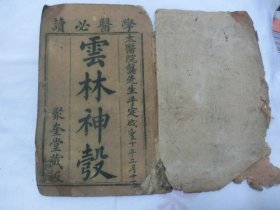 學醫必讀
太醫院龔先生手定
雲林神彀
聚奎堂藏